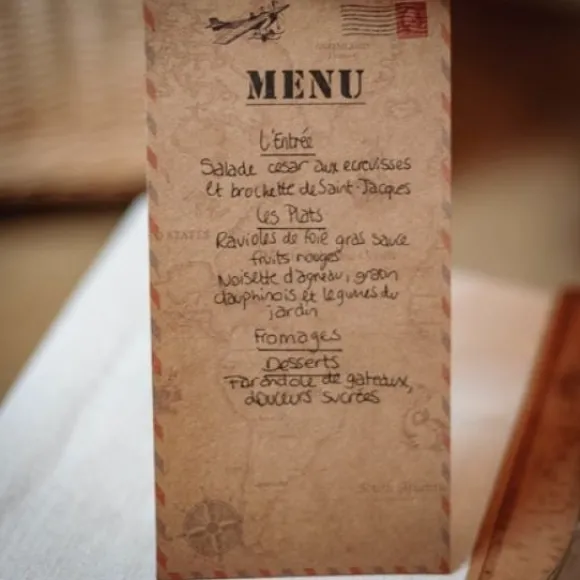 MENU
L'Entrée
Salade cesar aux ecrevisses
et brochette de Saint-Jacques
Les Plats
Ravioles de foie gras sauce
fruits rouges
Noisette d'agneau, gratin
dauphinois et legumes du
jardin
Fromages
Desserts
Farandole de gateaux,
douceurs sucrées